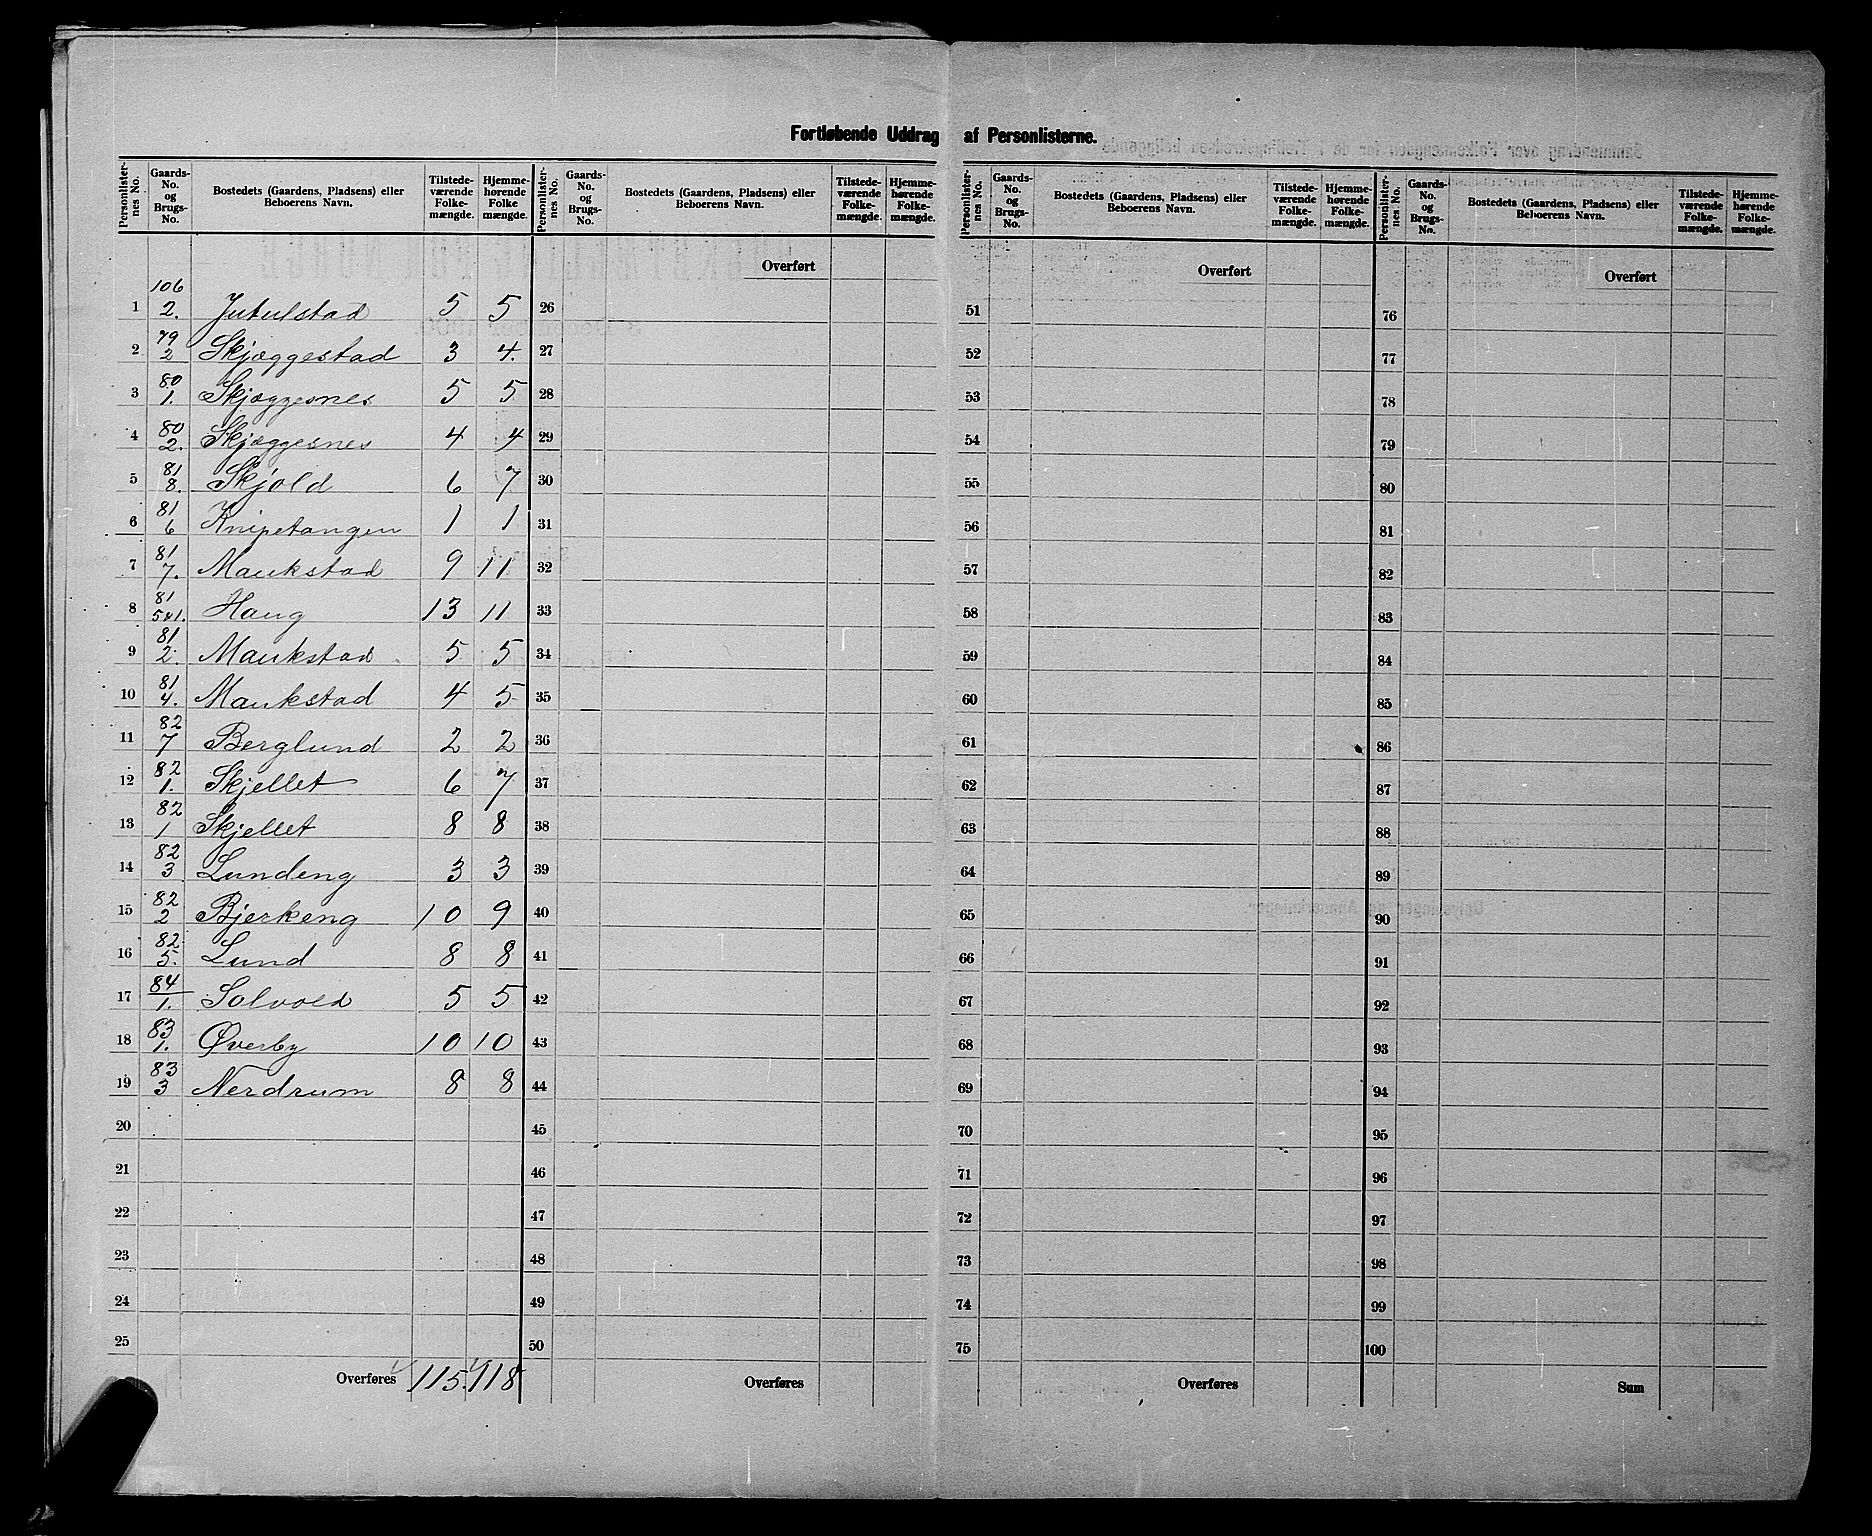 Fortløbende Uddrag af Personlisterne.
Personlister-nes No. | Gaards-No. og Brugs-No. | Bostedets (Gaardens, Pladsens) eller Beboerens Navn. | Tilstede-værende Folke-mængde. | Hjemme-hørende Folke mængde. | Personlister-nes No. | Gaards-No. og Brugs-No. | Bostedets (Gaardens, Pladsens) eller Beboerens Navn. | Tilstede-værende Folke-mængde. | Hjemme-hørende Folke-mængde. | Personlister-nes No. | Gaards-No. og Brugs-No. | Bostedets (Gaardens, Pladsens) eller Beboerens Navn. | Tilstede-værende Folke-mængde. | Hjemme-hørende Folke-mængde. | Personlister-nes No. | Gaards-No. og Brugs-No. | Bostedets (Gaardens, Pladsens) eller Beboerens Navn. | Tilstede-værende Folke-mængde. | Hjemme-hørende Folke-mængde.
Overført Overført Overført
1 106 2. Jutulstad 5 5 26 51 76
2 79 2 Skjæggestad 3 4. 27 52 77
3 80 1. Skjæggesnes 5 5 28 53 78
4 80 2. Skjæggesnes 4 4 29 54 79
5 81 8. Skjold 6 7 30 55 80
6 81 6 Knipetangen 1 1 31 56 81
7 81 7. Maukstad 9 11 32 57 82
8 81 5+1. Haug 13 11 33 58 83
9 81 2. Maukstad 5 5 34 59 84
10 81 4. Maukstad 4 5 35 60 85
11 82 7 Berglund 2 2 36 61 86
12 82 1. Skjellet 6 7 37 62 87
13 82 1 Skjellet 8 8 38 63 88
14 82 3 Lundeng 3 3 39 64 89
15 82 2 Bjerkeng 10 9 40 65 90
16 82 5. Lund 8 8 41 66 91
17 84 1. Solvold 5 5 42 67 92
18 83 1. Øverby 10 10 43 68 93
19 83 3 Nerdrum 8 8 44 69 94
20 45 70 95
21 46 71 96
22 47 72 97
23 48 73 98
24 49 74 99
25 50 75 100
Overføres 115. 118 Overføres Overføres Sum